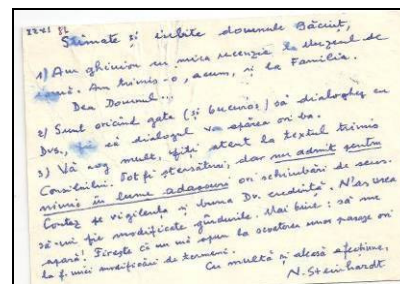 22 XI 82
Stimate și iubite domnule Băciuț,
1) Am ghinion cu mica recenzie la Muzeul de
. Am trimis-o, acum, și la Familia.
Dea Domnul...
2) Sunt oricând gata (și bucuros) să dialoghez cu
Dvs., fie că dialogul va apărea ori ba.
3) Vă rog mult, fiți atent la textul trimis
. Tot și ștersături, dar nu admit pentru
nimic în lume adaosuri ori schimbări de sens.
Contez pe vigilența și buna Dv. credință. N'aș vrea
să-mi fie modificate gândurile. Mai bine: să nu
apară! Firește că nu mă opun la scoaterea unor pasaje ori
la mici modificări de termeni.
Cu multă și aleasă afecțiune,
N. Steinhardt